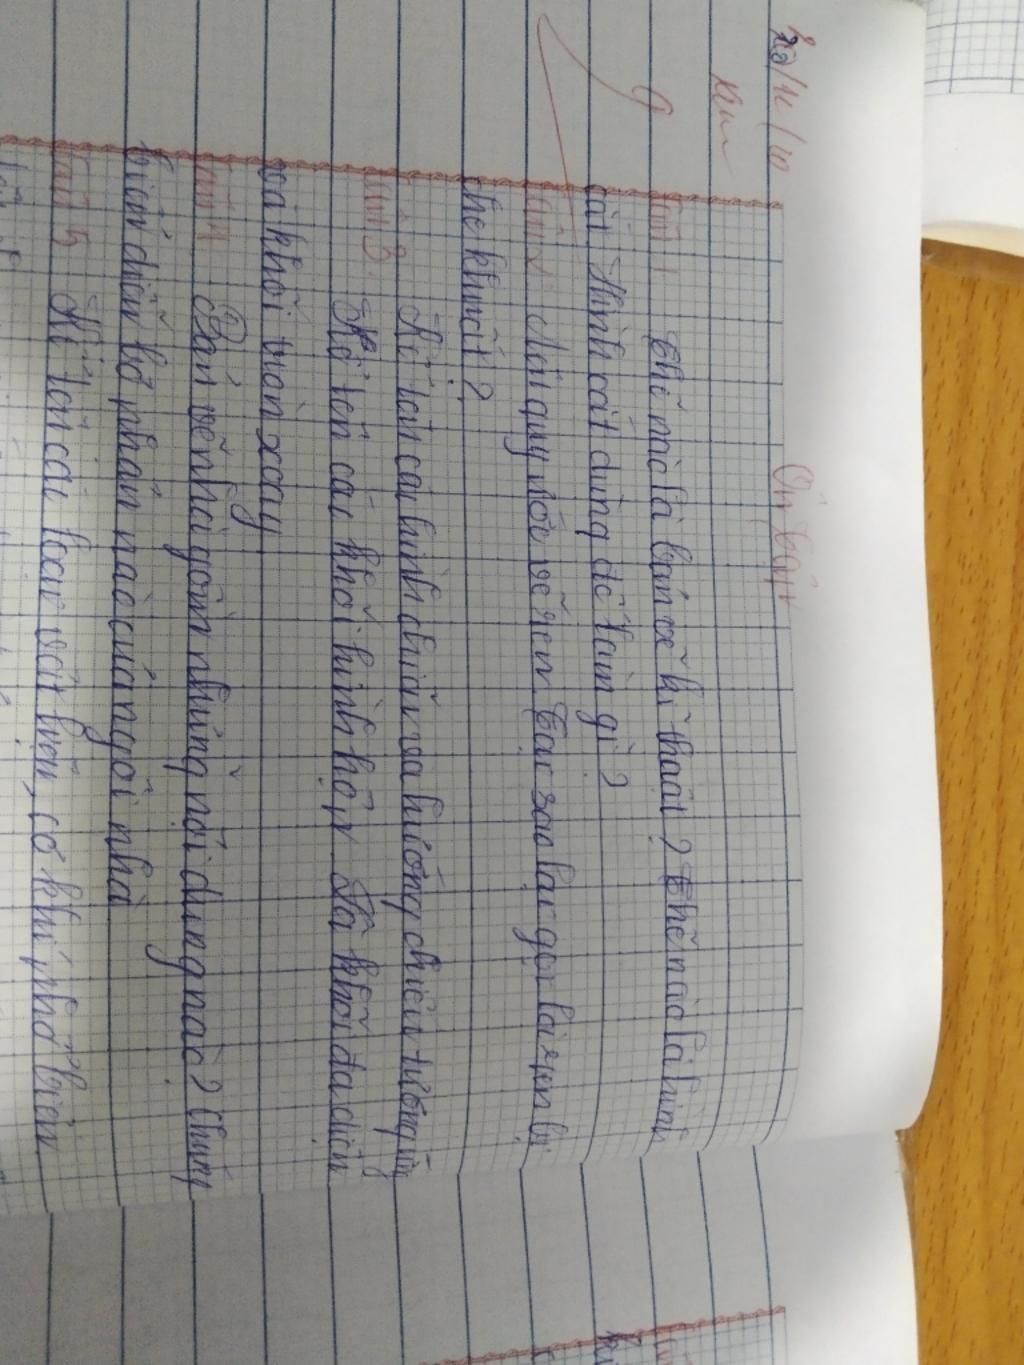 Ôn tập
Câu 1 Thế nào là bản vẽ kĩ thuật? Thế nào là hình
cắt Hình cắt dùng để làm gì?
Câu 2 Nêu quy ước vẽ ren Tại sao lại gọi là ren bị
che khuất?
Kể tên các hình chiếu và hướng chiếu tương ứng
Câu 3. Kể tên các khối hình học là khối đa diện
và khối tròn xoay
Câu 4 Bản vẽ nhà gồm những nội dung nào? Chúng
biểu diễn bộ phận nào của ngôi nhà
Câu 5 Kể tên các loại vật liệu cơ khí phổ biến